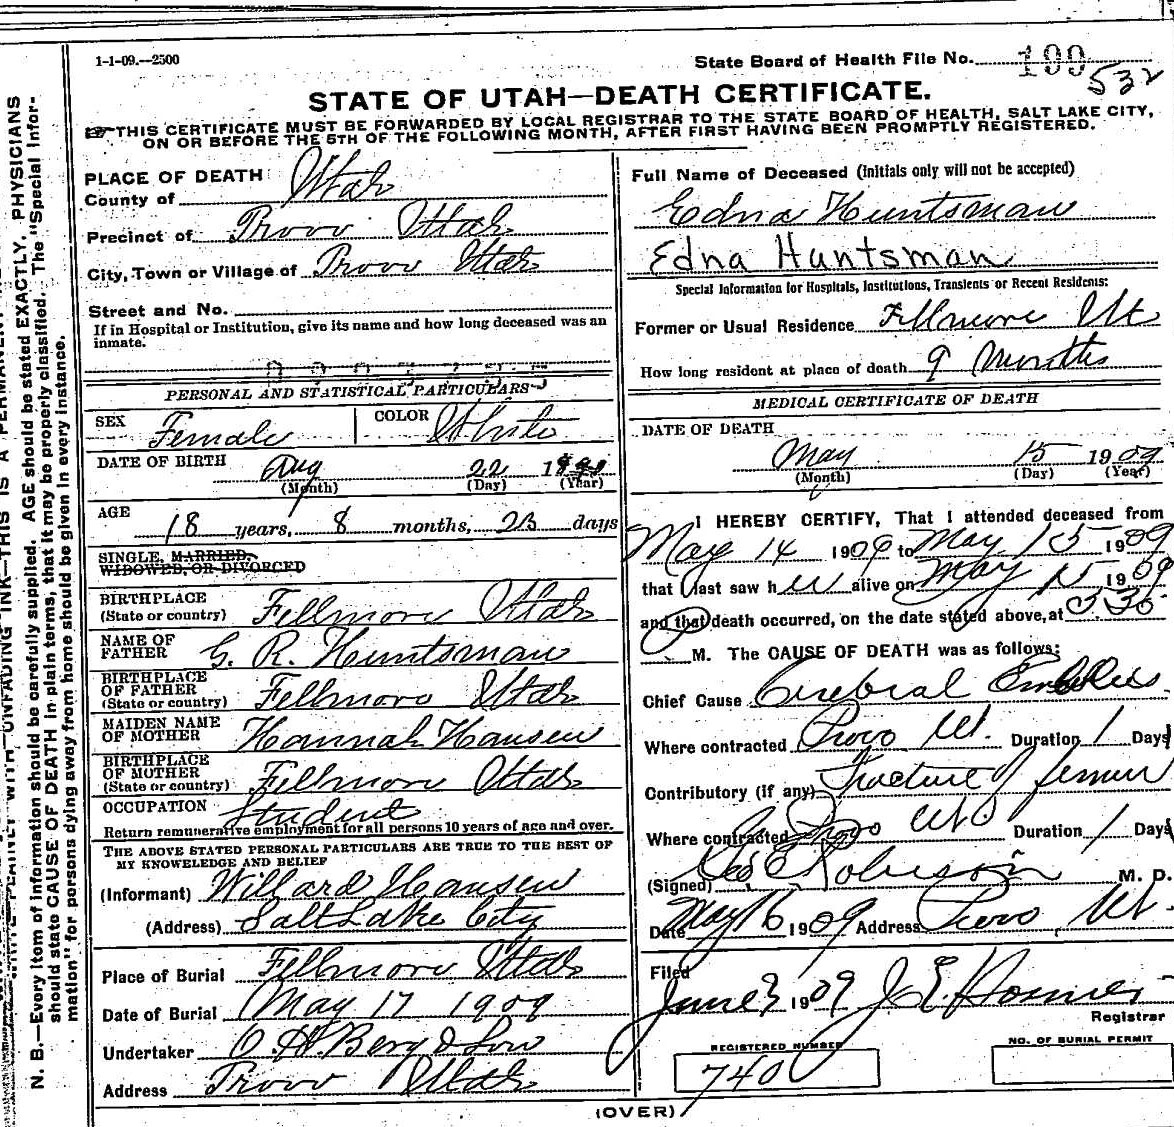 1-1-09.—2500
State Board of Health File No. 199
532
STATE OF UTAH—DEATH CERTIFICATE.
THIS CERTIFICATE MUST BE FORWARDED BY LOCAL REGISTRAR TO THE STATE BOARD OF HEALTH, SALT LAKE CITY,
ON OR BEFORE THE 5TH OF THE FOLLOWING MONTH, AFTER FIRST HAVING BEEN PROMPTLY REGISTERED.
PLACE OF DEATH
County of Utah
Precinct of Provo Utah
City, Town or Village of Provo Utah
Street and No.
If in Hospital or Institution, give its name and how long deceased was an
inmate.
PERSONAL AND STATISTICAL PARTICULARS
SEX Female COLOR White
DATE OF BIRTH Aug 22 1890
(Month) (Day) (Year)
AGE 18 years, 8 months, 23 days
SINGLE, MARRIED,
WIDOWED, OR DIVORCED
BIRTHPLACE
(State or country) Fillmore Utah
NAME OF
FATHER G. R. Huntsman
BIRTHPLACE
OF FATHER
(State or country) Fillmore Utah
MAIDEN NAME
OF MOTHER Hannah Hansen
BIRTHPLACE
OF MOTHER
(State or country) Fillmore Utah
OCCUPATION Student
Return remunerative employment for all persons 10 years of age and over.
THE ABOVE STATED PERSONAL PARTICULARS ARE TRUE TO THE BEST OF
MY KNOWLEDGE AND BELIEF
(Informant) Willard Hansen
(Address) Salt Lake City
Place of Burial Fillmore Utah
Date of Burial May 17 1909
Undertaker O. H. Berg & Son
Address Provo Utah
Full Name of Deceased (Initials only will not be accepted)
Edna Huntsman
Edna Huntsman
Special Information for Hospitals, Institutions, Transients or Recent Residents:
Former or Usual Residence Fillmore Ut
How long resident at place of death 9 Months
MEDICAL CERTIFICATE OF DEATH
DATE OF DEATH
May 15 1909
(Month) (Day) (Year)
I HEREBY CERTIFY, That I attended deceased from
May 14 1909 to May 15 1909
that I last saw her alive on May 15 1909
and that death occurred, on the date stated above, at 3 30
M. The CAUSE OF DEATH was as follows:
Chief Cause Cerebral Embolus
Where contracted Provo Ut. Duration 1 Days
Contributory (if any) Fracture of femur
Where contracted Provo Ut Duration 1 Days
(Signed) Geo E Robison M. D.
Date May 16 1909 Address Provo Ut.
Filed
June 3 1909 J E Homer
Registrar
REGISTERED NUMBER
740
NO. OF BURIAL PERMIT
(OVER)
N. B.—Every item of information should be carefully supplied. AGE should be stated EXACTLY. PHYSICIANS
should state CAUSE OF DEATH in plain terms, that it may be properly classified. The "Special Infor-
mation" for persons dying away from home should be given in every instance.